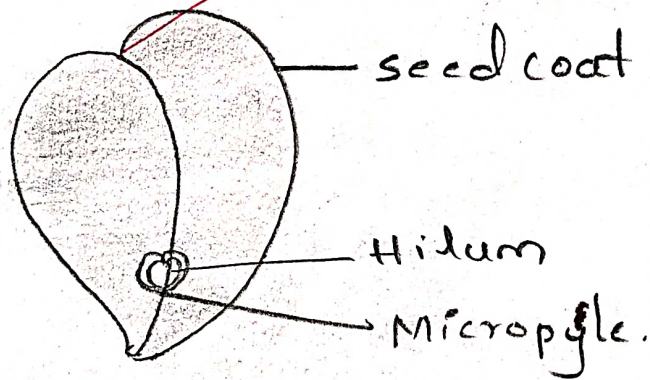 seed coat
Hilum
Micropyle.